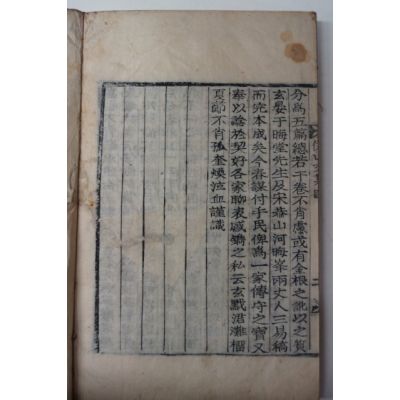 分爲五篇總若干卷不肖慮或有金根之訛以之質
玄晏于晦堂先生及宋恭山河晦峯兩丈人三易稿
而完本成矣今春謀付手民俾爲一家傳守之寶又
奉以諗於契好各家聊表戚鐫之私云玄黓涒灘榴
夏節不肖孤奎煥泣血謹識